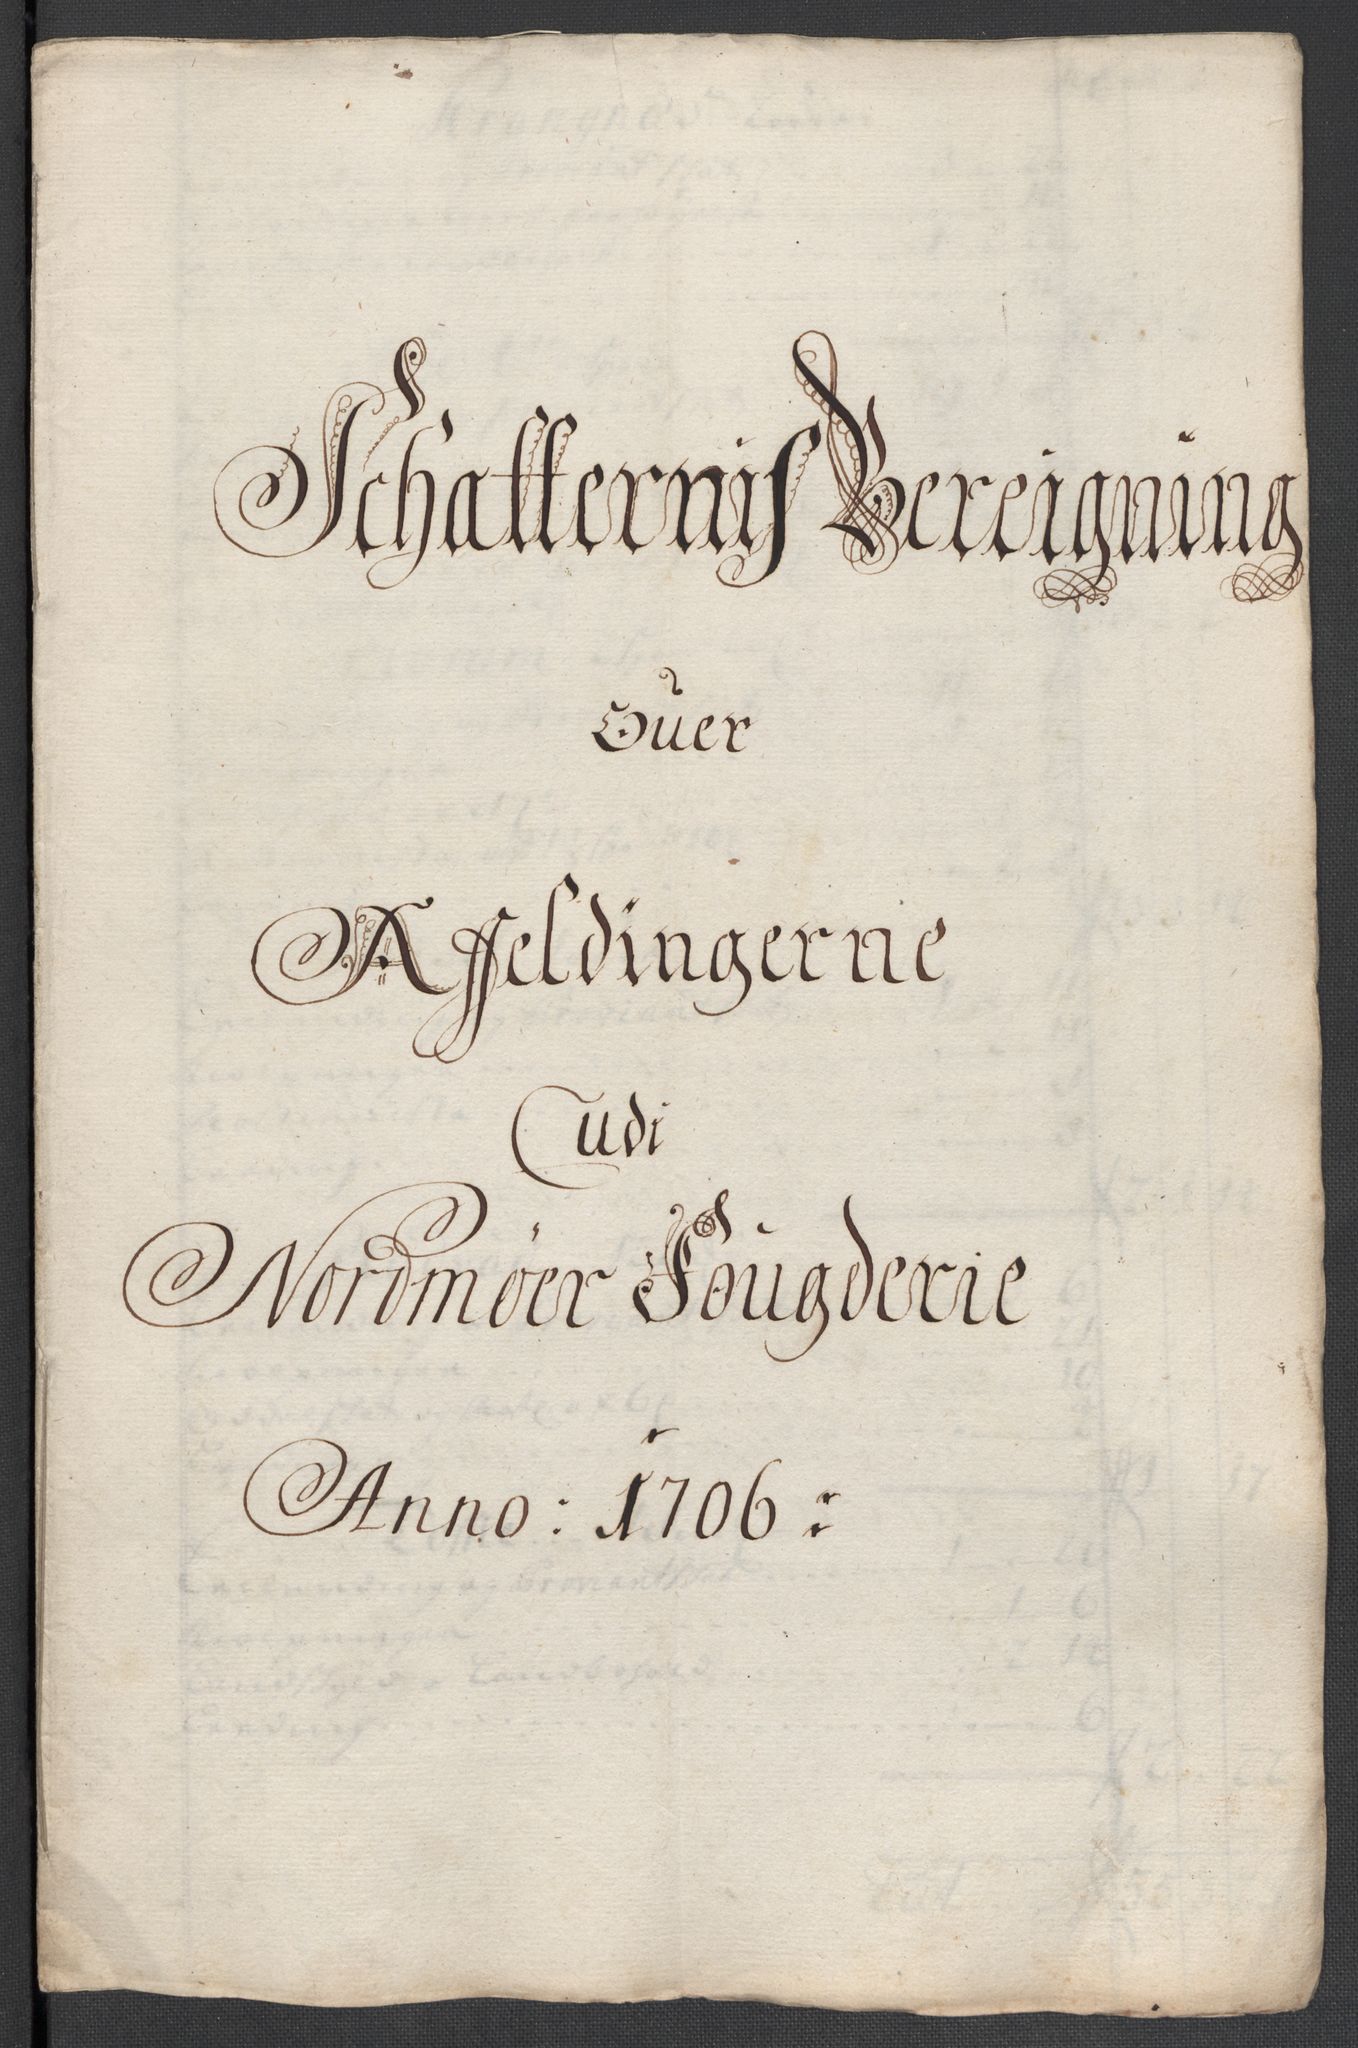 Schatternis Bereigning
Ouer
Affeldingerne
udi
Nordmøer Fougderie
Anno: 1706: